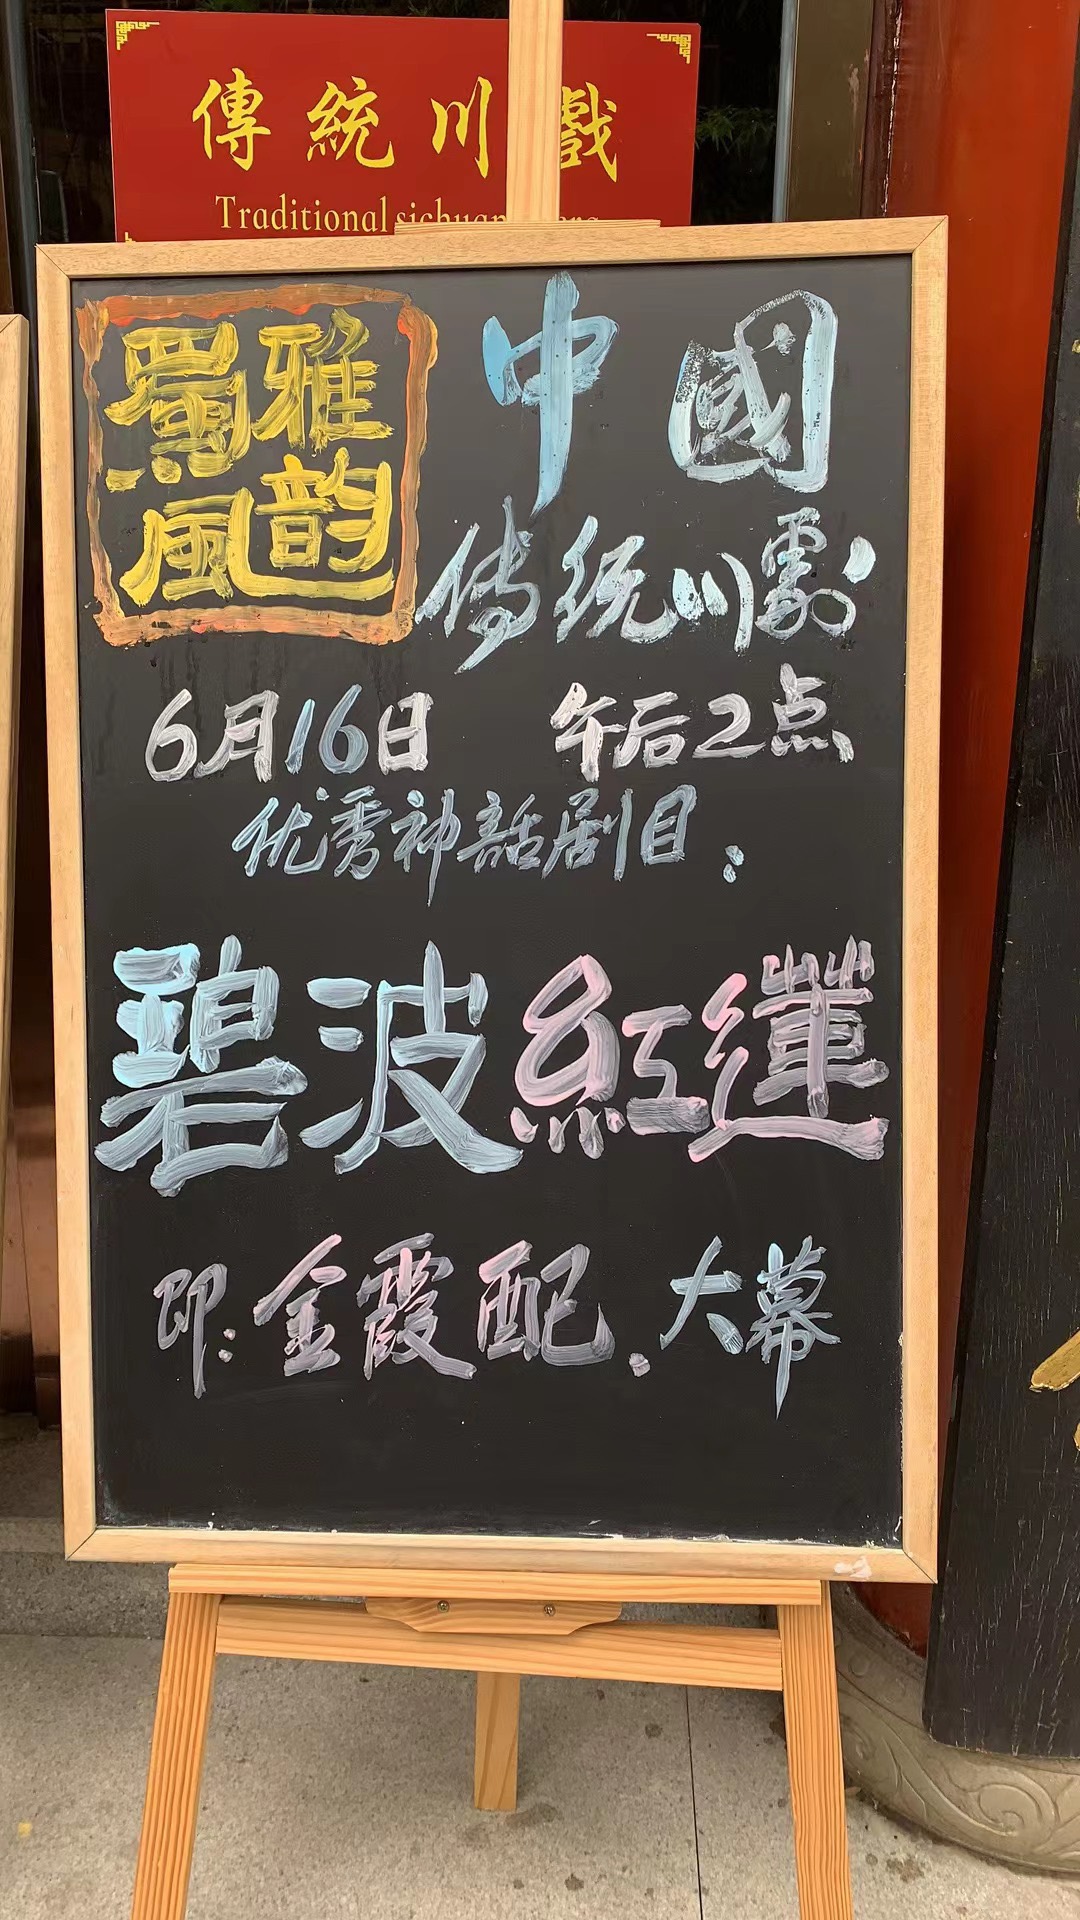 傳統川戲
Traditional sichuan
蜀風
雅韵
中國
傳统川劇
6月16日 午后2点
优秀神話剧目:
碧波紅蓮
即:金霞配.大幕